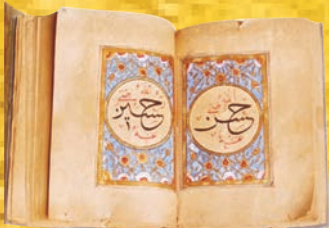 حسن
حسين